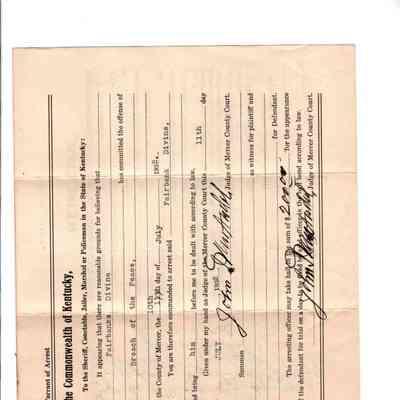 arrant of Arrest
he Commonwealth of Kentucky,
To the Sheriff, Constable, Jailer, Marshal or Policeman in the State of Kentucky:
It appearing that there are reasonable grounds for believing that
Fairbanks Divine
has committed the offense of
Breach of the Peace,
the County of Mercer, the 10th day of July 190
You are therefore commanded to arrest said Fairbanks Divine,
nd bring him before me to be dealt with according to law.
Given under my hand as Judge of the Mercer County Court this 11th day
JULY 190
John Judge of Mercer County Court.
Summon as witness for plaintiff and
for Defendant.
The arresting officer may take bail in the sum of $ for the appearance
f the defendant for trial on a day to be bond according to law
John Judge of Mercer County Court.